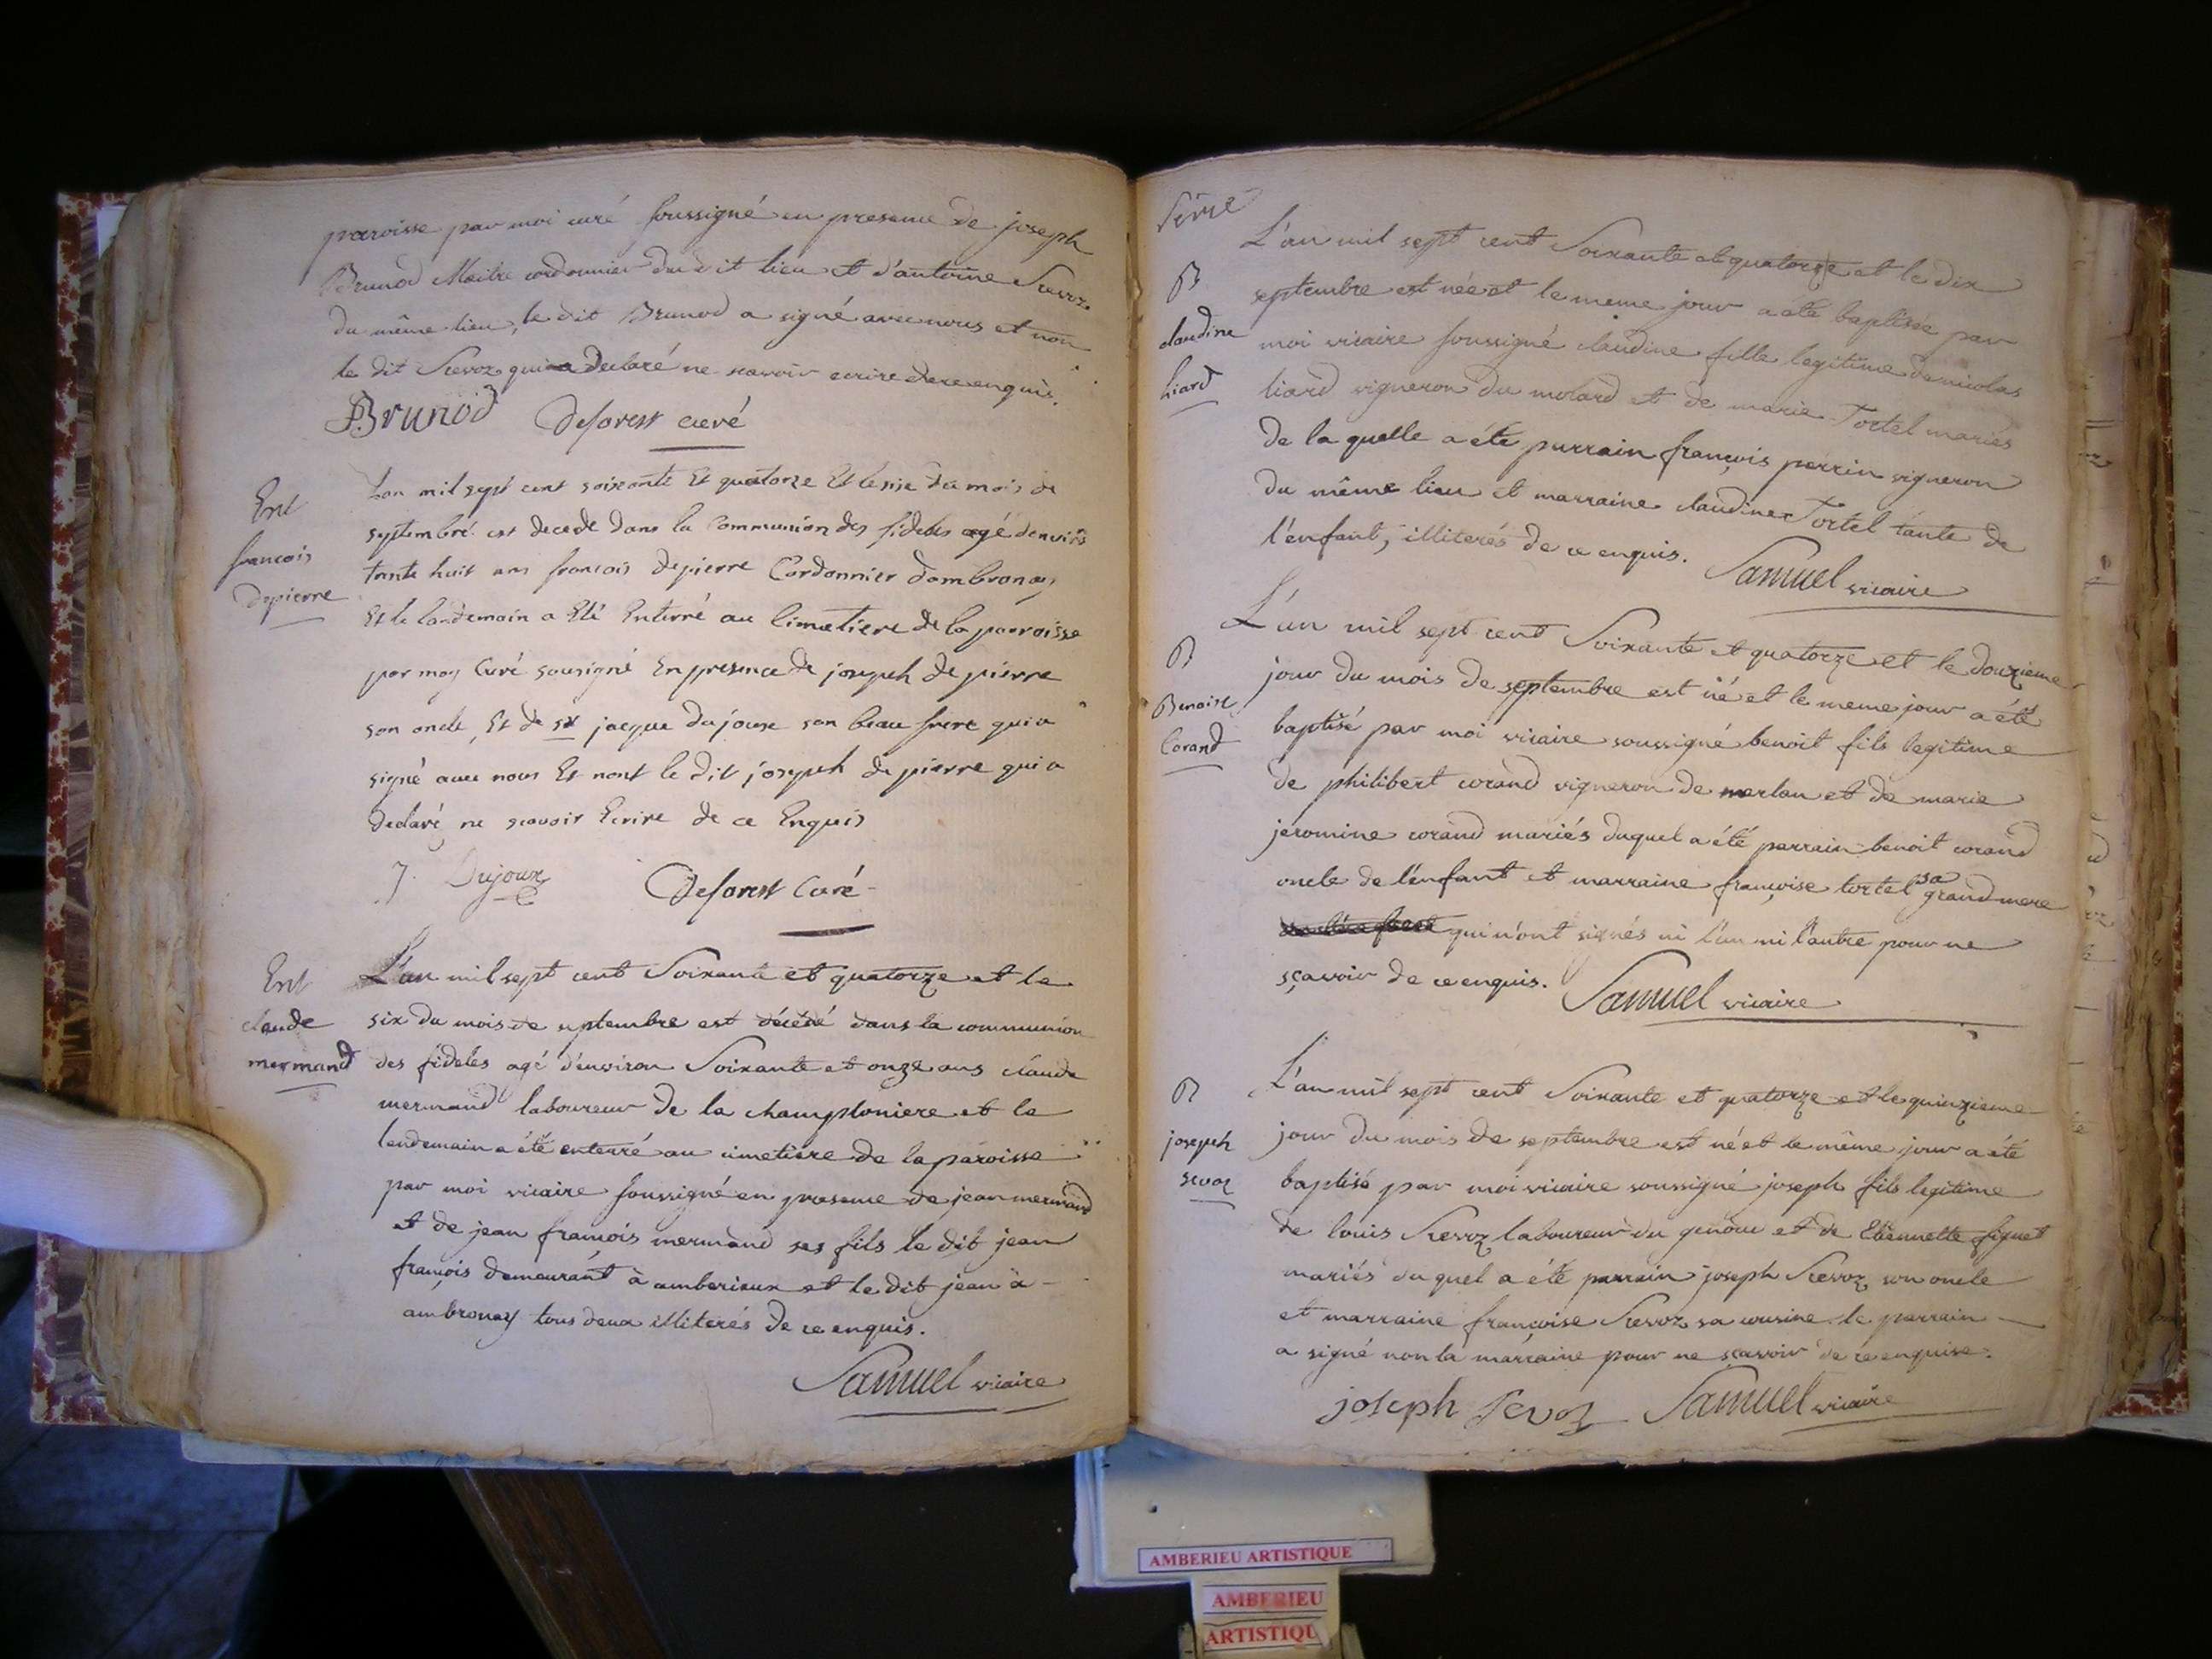 paroisse par moi curé soussigné en presence de joseph
Brunod Maitre cordonnier du dit lieu et d'antoine Scevoz
du même lieu, le dit Brunod a signé avec nous et non
le dit Scevoz qui a declaré ne scavoir ecrire de ce enquis.
Brunod Deforest curé
Ent
francois
Depierre
Lan mil sept cent soixante Et quatorze Et le sixe du mois de
septembre est decede dans la Communion des fideles agé denviron
trente huit ans francois depierre Cordonnier dambronay
Et le landemain a Eté Enterré au Cimetiere de la parroisse
par moy Curé sousigné En presence de joseph de pierre
son oncle Et de sr jacque dujoux son beau frere qui a
signé avec nous Et nont le dit joseph de pierre qui a
declaré ne scavoir Ecrire de ce Enquis
J. Dujoux Deforest Curé
Ent
claude
mermand
L'an mil sept cent Soixante et quatorze et le
six du mois de septembre est décédé dans la communion
des fideles agé d'environ Soixante et onze ans claude
mermand laboureur de la champloniere et le
lendemain a été enterré au cimetiere de la paroisse
par moi vicaire soussigné en presence de jean mermand
et de jean françois mermand ses fils le dit jean
françois demeurant à amberieux et le dit jean à
ambronay tous deux illiterés de ce enquis.
Samuel vicaire
B
claudine
liard
L'an mil sept cent Soixante et quatorze et le dix
septembre est née et le meme jour a été baptisée par
moi vicaire soussigné claudine fille legitime de nicolas
liard vigneron du molard et de marie Tortel mariés
de la quelle a été parrain françois perrin vigneron
du même lieu et marraine claudine Tortel tante de
l'enfant, illiterés de ce enquis. Samuel vicaire
B
Benoist
Corand
L'an mil sept cent Soixante et quatorze et le douzieme
jour du mois de septembre est né et le meme jour a été
baptisé par moi vicaire soussigné benoit fils legitime
de philibert corand vigneron de merlan et de marie
jeromine corand mariés duquel a été parrain benoit corand
oncle de l'enfant et marraine françoise tortel sa grand mere
qui n'ont signés ni l'un ni l'autre pour ne
sçavoir de ce enquis. Samuel vicaire
B
joseph
sevoz
L'an mil sept cent Soixante et quatorze et le quinzieme
jour du mois de septembre est né et le même jour a été
baptisé par moi vicaire soussigné joseph fils legitime
de louis Scevoz laboureur du genoux et de Etiennette figuet
mariés du quel a été parrain joseph Scevoz son oncle
et marraine françoise Scevoz sa cousine le parrain
a signé non la marraine pour ne sçavoir de ce enquise.
joseph Sevoz Samuel vicaire
AMBERIEU ARTISTIQUE
AMBERIEU
ARTISTIQU